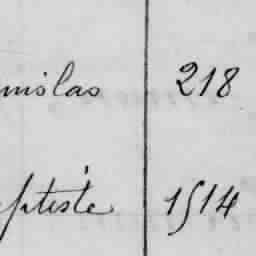 nislas 218
aptiste 1514